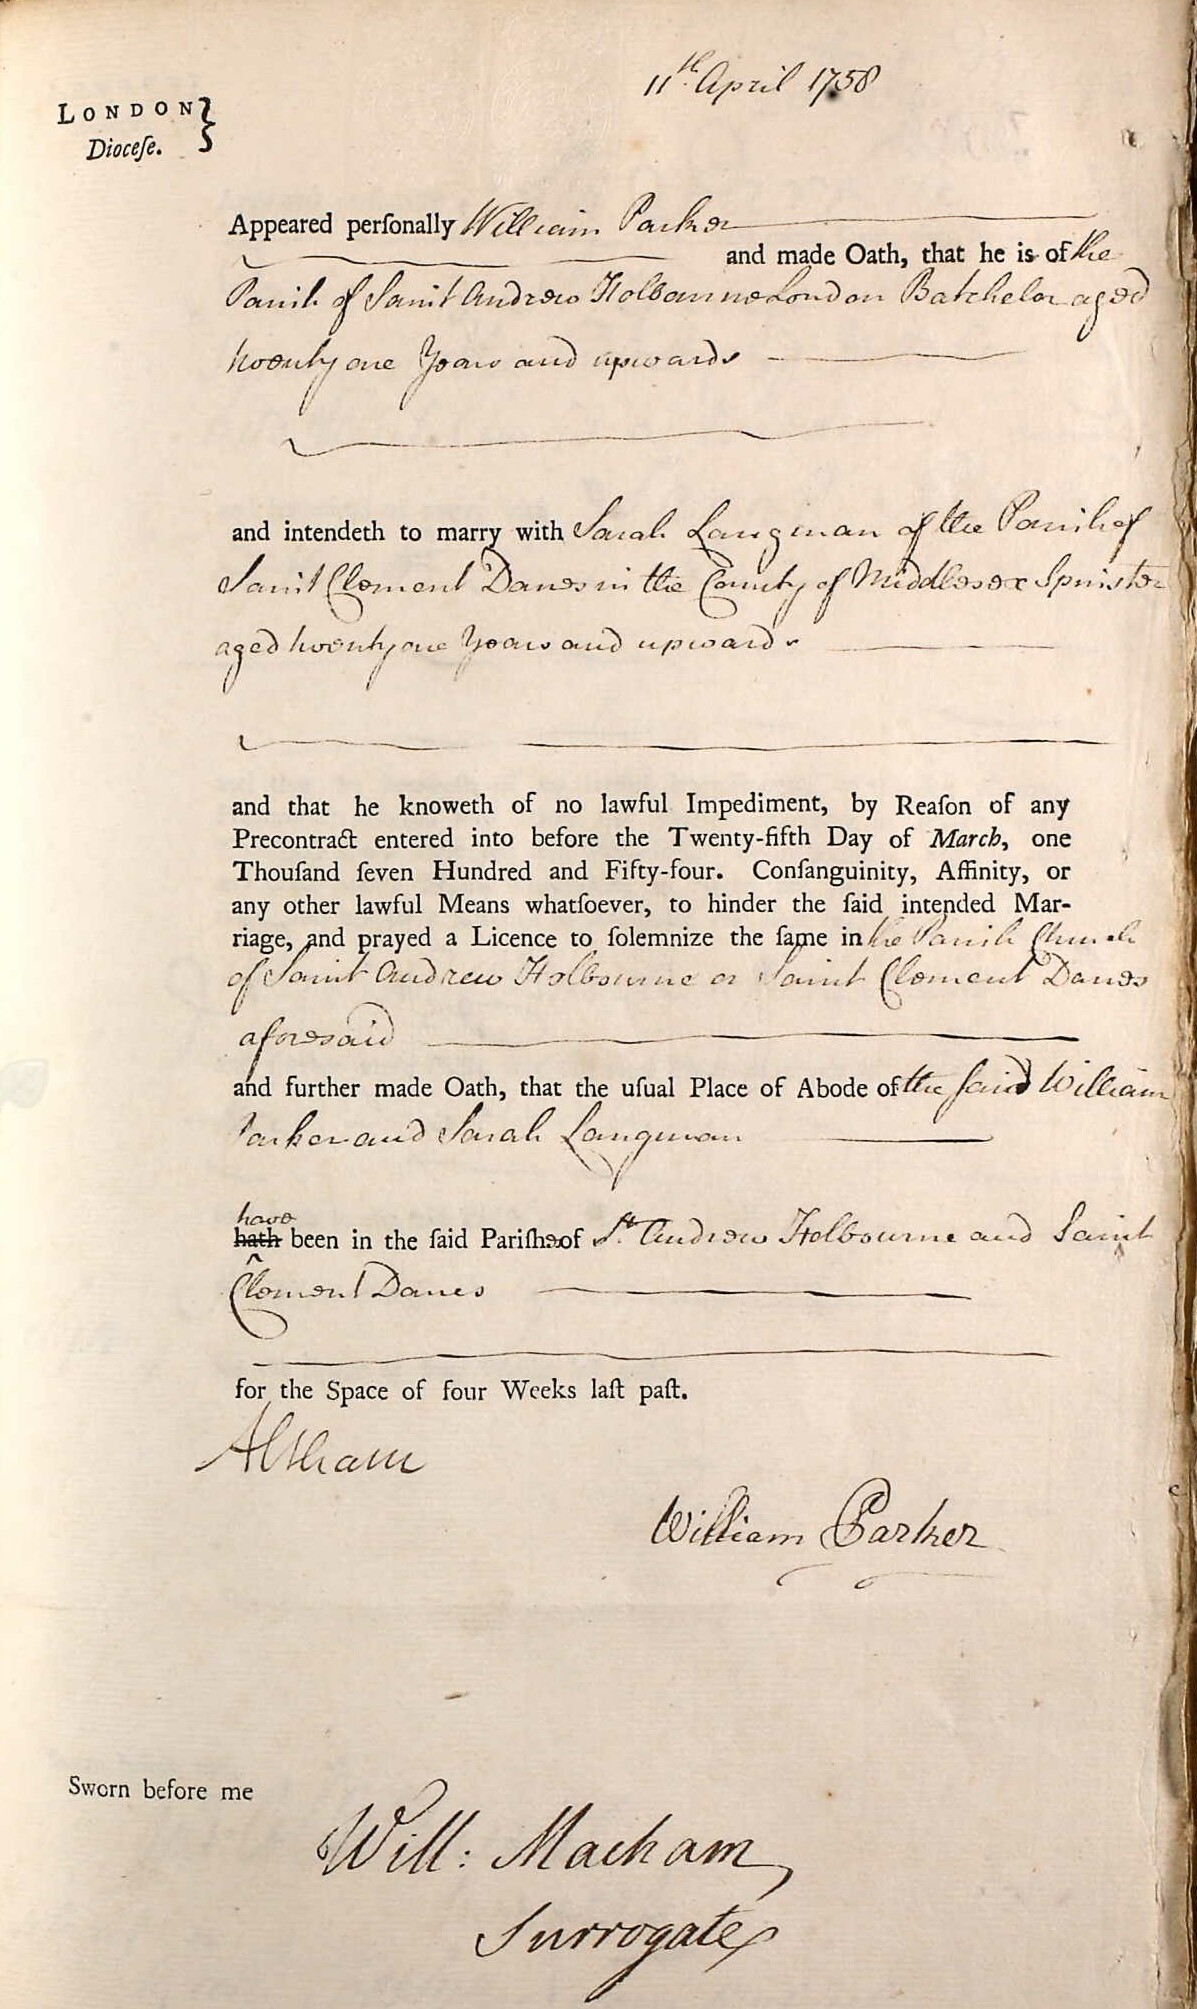 11th. April 1758
LONDON }
Dioceſe.
Appeared perſonally William Parker
and made Oath, that he is of the
Parish of Saint Andrew Holbourne London Batchelor aged
twenty one Years and upwards
and intendeth to marry with Sarah Langman of the Parish of
Saint Clement Danes in the County of Middlesex Spinster
aged twenty one Years and upwards
and that he knoweth of no lawful Impediment, by Reaſon of any
Precontract entered into before the Twenty-fifth Day of March, one
Thouſand ſeven Hundred and Fifty-four. Conſanguinity, Affinity, or
any other lawful Means whatſoever, to hinder the ſaid intended Mar-
riage, and prayed a Licence to ſolemnize the ſame in the Parish Church
of Saint Andrew Holbourne or Saint Clement Danes
aforesaid
and further made Oath, that the uſual Place of Abode of the said William
Parker and Sarah Langman
have
hath been in the ſaid Pariſhes of St. Andrew Holbourne and Saint
Clement Danes
for the Space of four Weeks laſt paſt.
Altham
William Parker
Sworn before me
Will: Macham
Surrogate